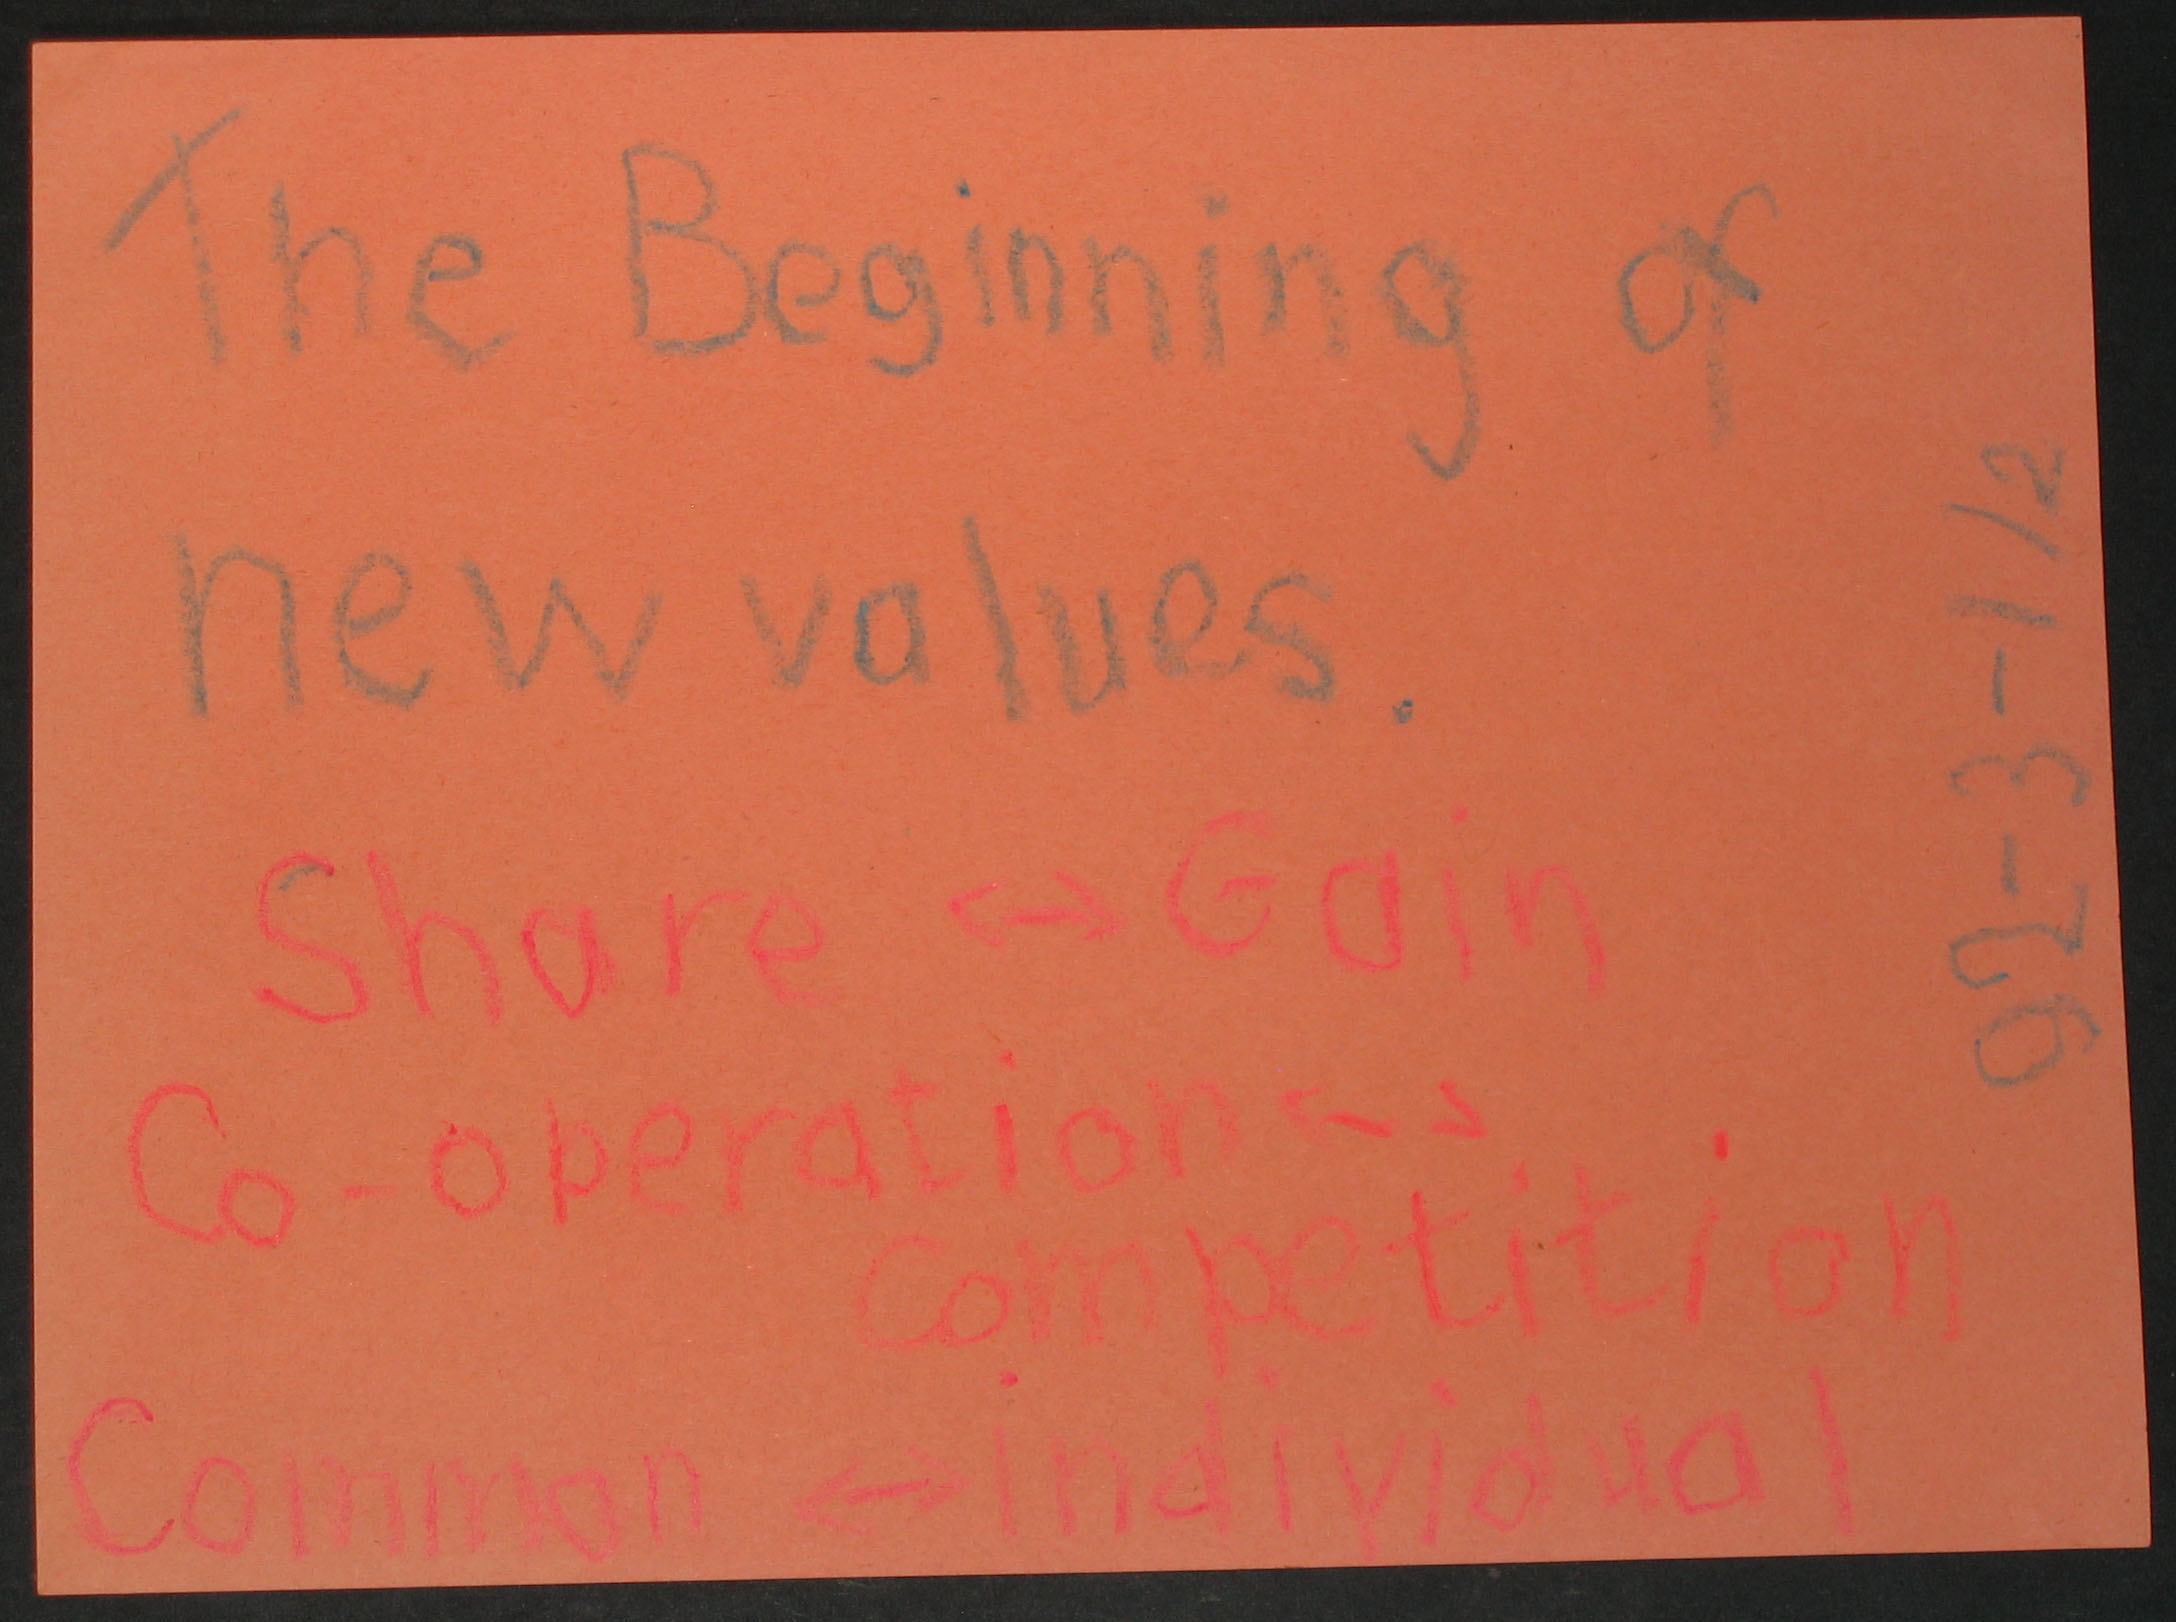 The Beginning of
new values.
Share <-> Gain
Co-operation <- >
Competition
Common <-> individual
92-3-1/2